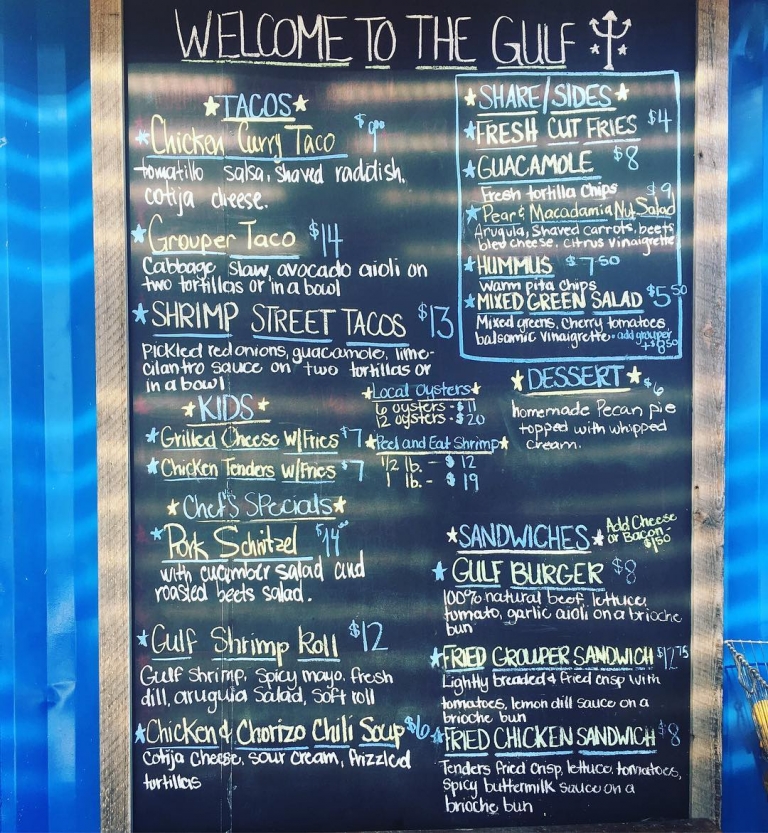 WELCOME TO THE GULF
★TACOS★
★Chicken Curry Taco
tomatillo salsa, shaved raddish,
cotija cheese.
★Grouper Taco $14
Cabbage slaw, avocado aioli on
two tortillas or in a bowl
★SHRIMP STREET TACOS $13
Pickled red onions, guacamole, lime-
cilantro sauce on two tortillas or
in a bowl
★KIDS★
★Grilled Cheese w/Fries $7
★Chicken Tenders w/Fries $7
★Local Oysters★
6 oysters - $11
12 oysters - $20
★Peel and Eat Shrimp★
1/2 lb. - $12
1 lb. - $19
★Chef's Specials★
★Pork Schnitzel
with cucumber salad and
roasted beets salad.
★Gulf Shrimp Roll $12
Gulf shrimp, spicy mayo, fresh
dill, arugula salad, soft roll
★Chicken & Chorizo Chili Soup $6
Cotija Cheese, sour cream, frizzled
tortillas
★SHARE/SIDES★
★FRESH CUT FRIES $4
★GUACAMOLE $8
Fresh tortilla chips
★Pear & Macadamia Nut Salad $9
Arugula, Shaved carrots, beets
bleu cheese, citrus vinaigrette
★HUMMUS $7.50
warm pita chips
★MIXED GREEN SALAD $5.50
Mixed greens, cherry tomatoes,
balsamic vinaigrette - add grouper
+$8.50
★DESSERT★ $6
homemade Pecan pie
topped with whipped
cream.
★SANDWICHES★ Add Cheese
or Bacon -
$1.50
★GULF BURGER $8
100% natural beef, lettuce,
tomato, garlic aioli on a brioche
bun
★FRIED GROUPER SANDWICH $12.75
Lightly breaded & fried crisp with
tomatoes, lemon dill sauce on a
brioche bun
★FRIED CHICKEN SANDWICH $8
Tenders fried crisp, lettuce, tomatoes,
spicy buttermilk sauce on a
brioche bun